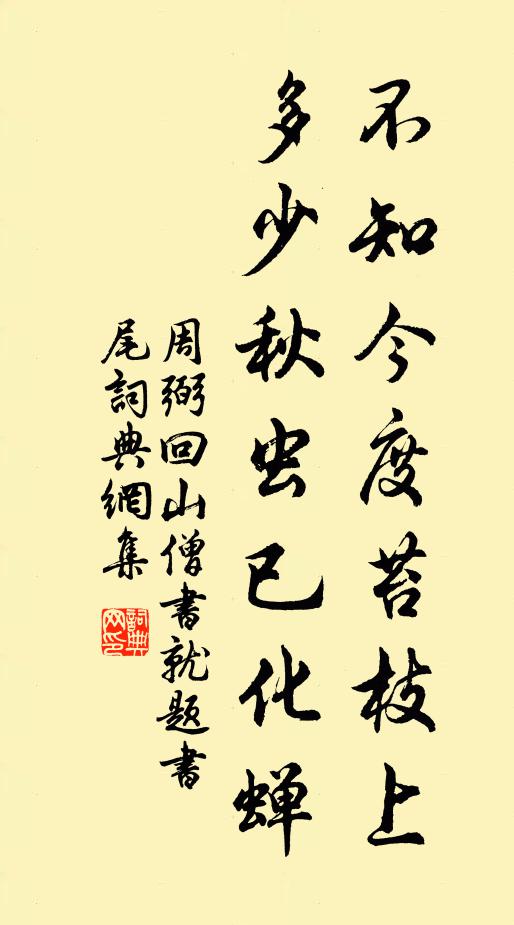 不知今度苔枝上
多少秋虫已化蝉
周弼回山僧書就题書
尾詞典網集
詞典
网印